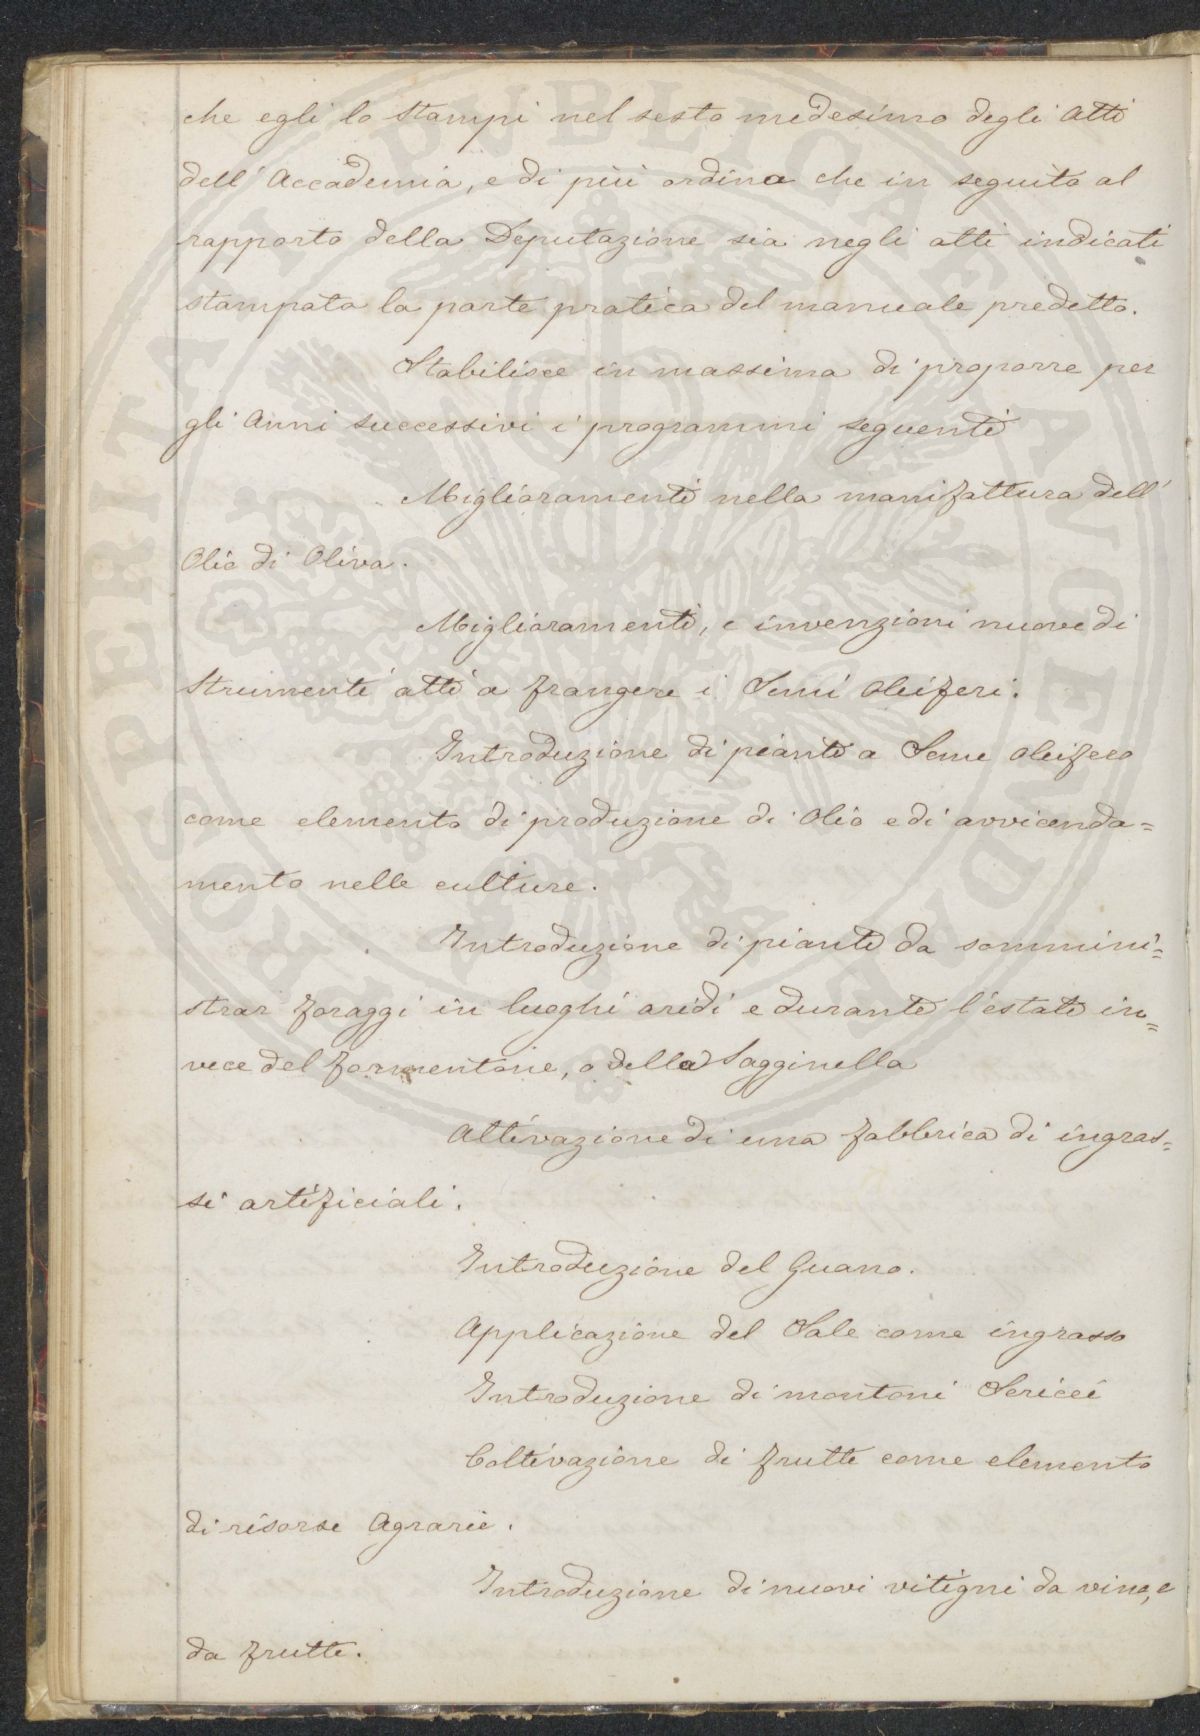 che egli lo stampi nel sesto medesimo degli Atti
dell' Accademia, e di più ordina che in seguito al
rapporto della Deputazione sia negli atti indicati
stampata la parte pratica del manuale predetto.
Stabilisce in massima di proporre per
gli Anni successivi i programmi seguenti
Miglioramenti nella manifattura dell'
Olio di Oliva.
Miglioramenti, e invenzioni nuove di
Strumenti atti a frangere i Semi oleiferi.
Introduzione di piante a Seme oleifero
come elemento di produzione di Olio e di avvicenda=
mento nelle culture.
Introduzione di piante da sommini=
strar foraggi in luoghi aridi e durante l'estate in=
vece del formentone, o della Sagginella
Attivazione di una fabbrica di ingras=
si artificiali.
Introduzione del Guano.
Applicazione del Sale come ingrasso
Introduzione di montoni Sericei
Coltivazione di frutte come elemento
di risorse Agrarie.
Introduzione di nuovi vitigni da vino, e
da frutte.
PROSPERITATI PVBLICAE AVGENDAE